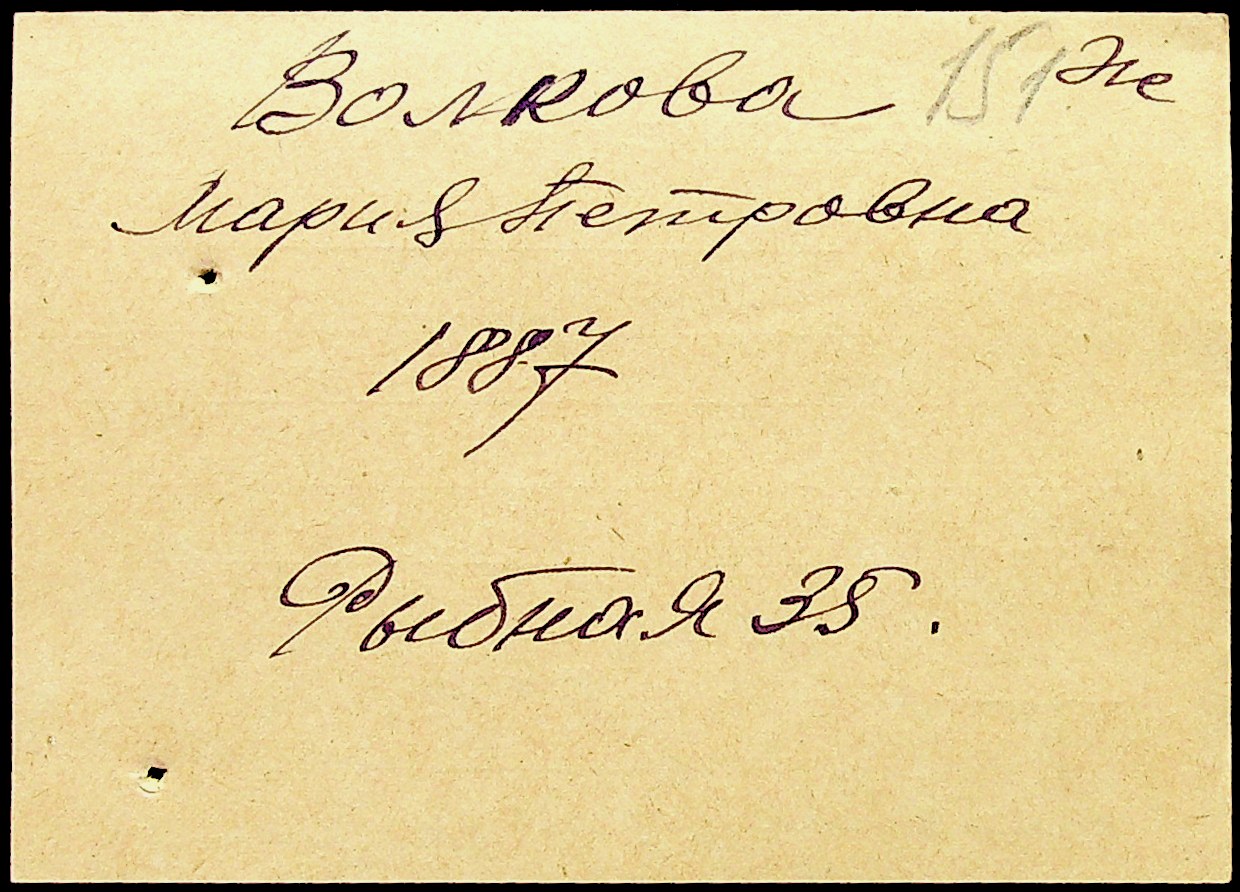 Волкова 151 Же
Мария Петровна
1887
Рыбная 35.